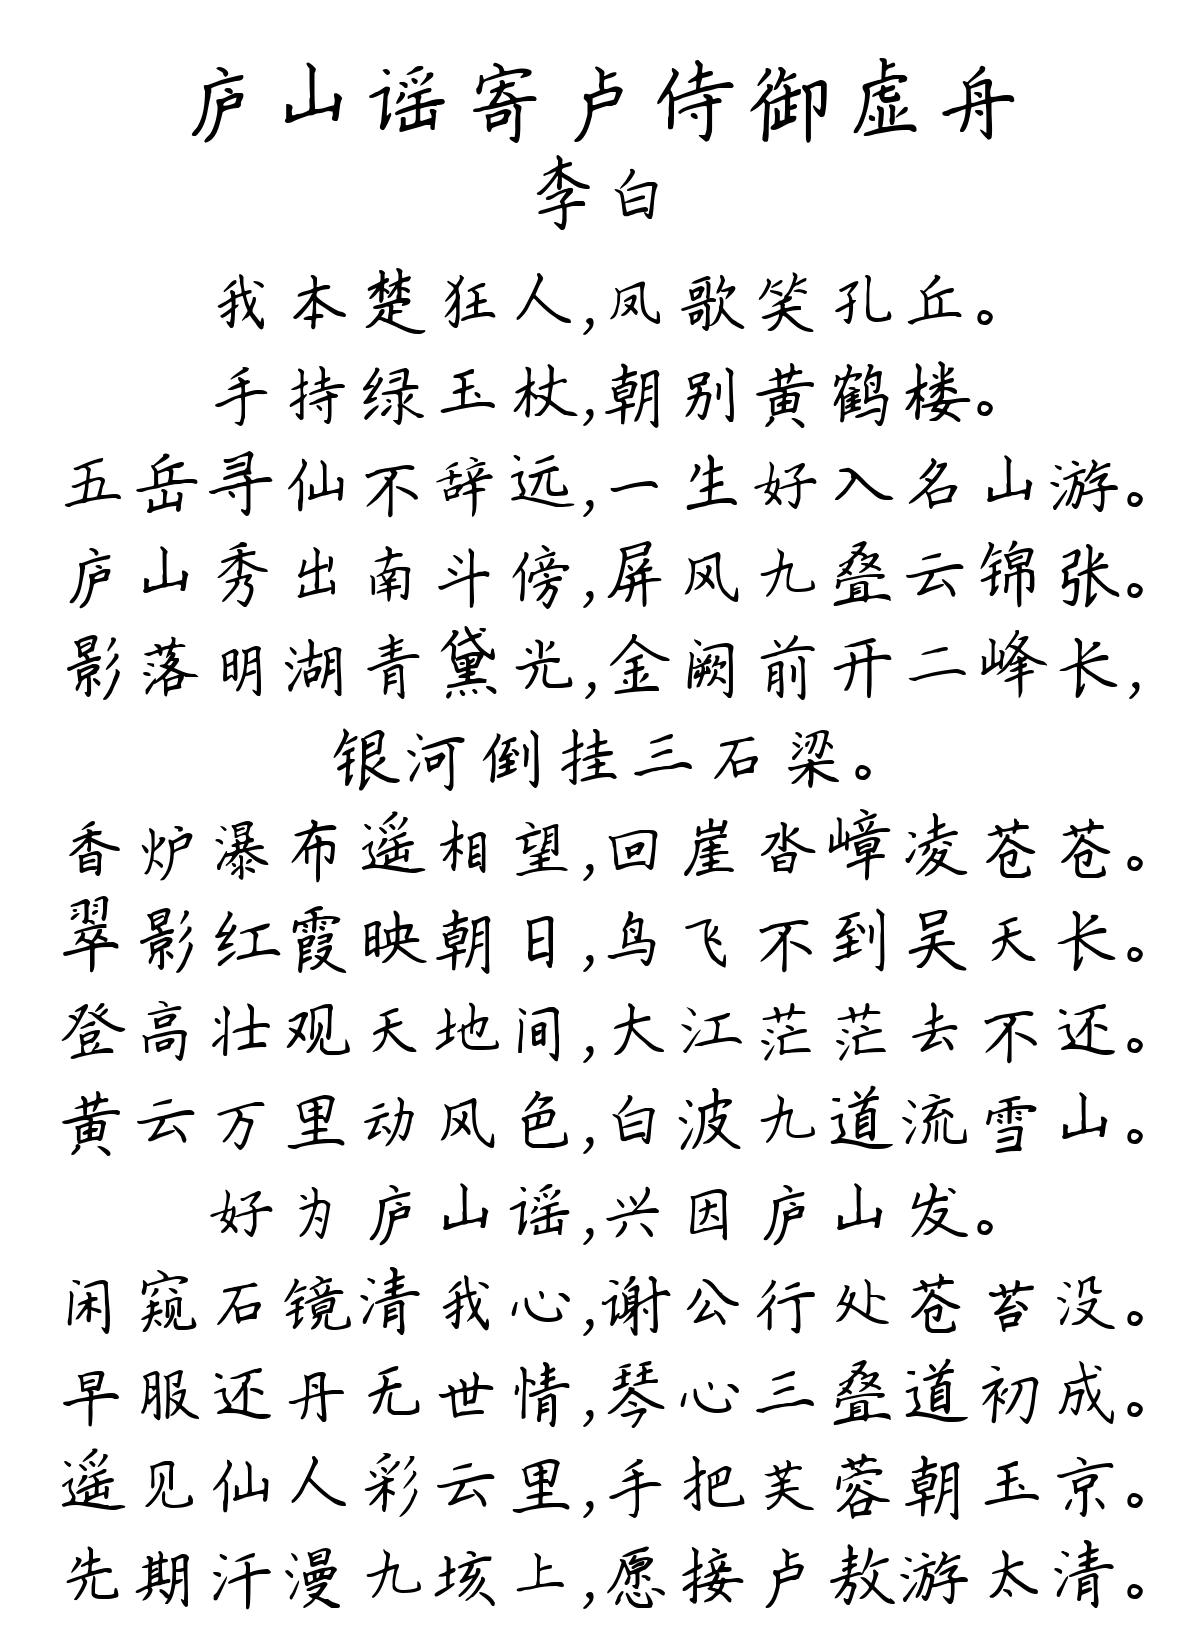 庐山谣寄卢侍御虚舟
李白
我本楚狂人,凤歌笑孔丘。
手持绿玉杖,朝别黄鹤楼。
五岳寻仙不辞远,一生好入名山游。
庐山秀出南斗傍,屏风九叠云锦张。
影落明湖青黛光,金阙前开二峰长,
银河倒挂三石梁。
香炉瀑布遥相望,回崖沓嶂凌苍苍。
翠影红霞映朝日,鸟飞不到吴天长。
登高壮观天地间,大江茫茫去不还。
黄云万里动风色,白波九道流雪山。
好为庐山谣,兴因庐山发。
闲窥石镜清我心,谢公行处苍苔没。
早服还丹无世情,琴心三叠道初成。
遥见仙人彩云里,手把芙蓉朝玉京。
先期汗漫九垓上,愿接卢敖游太清。